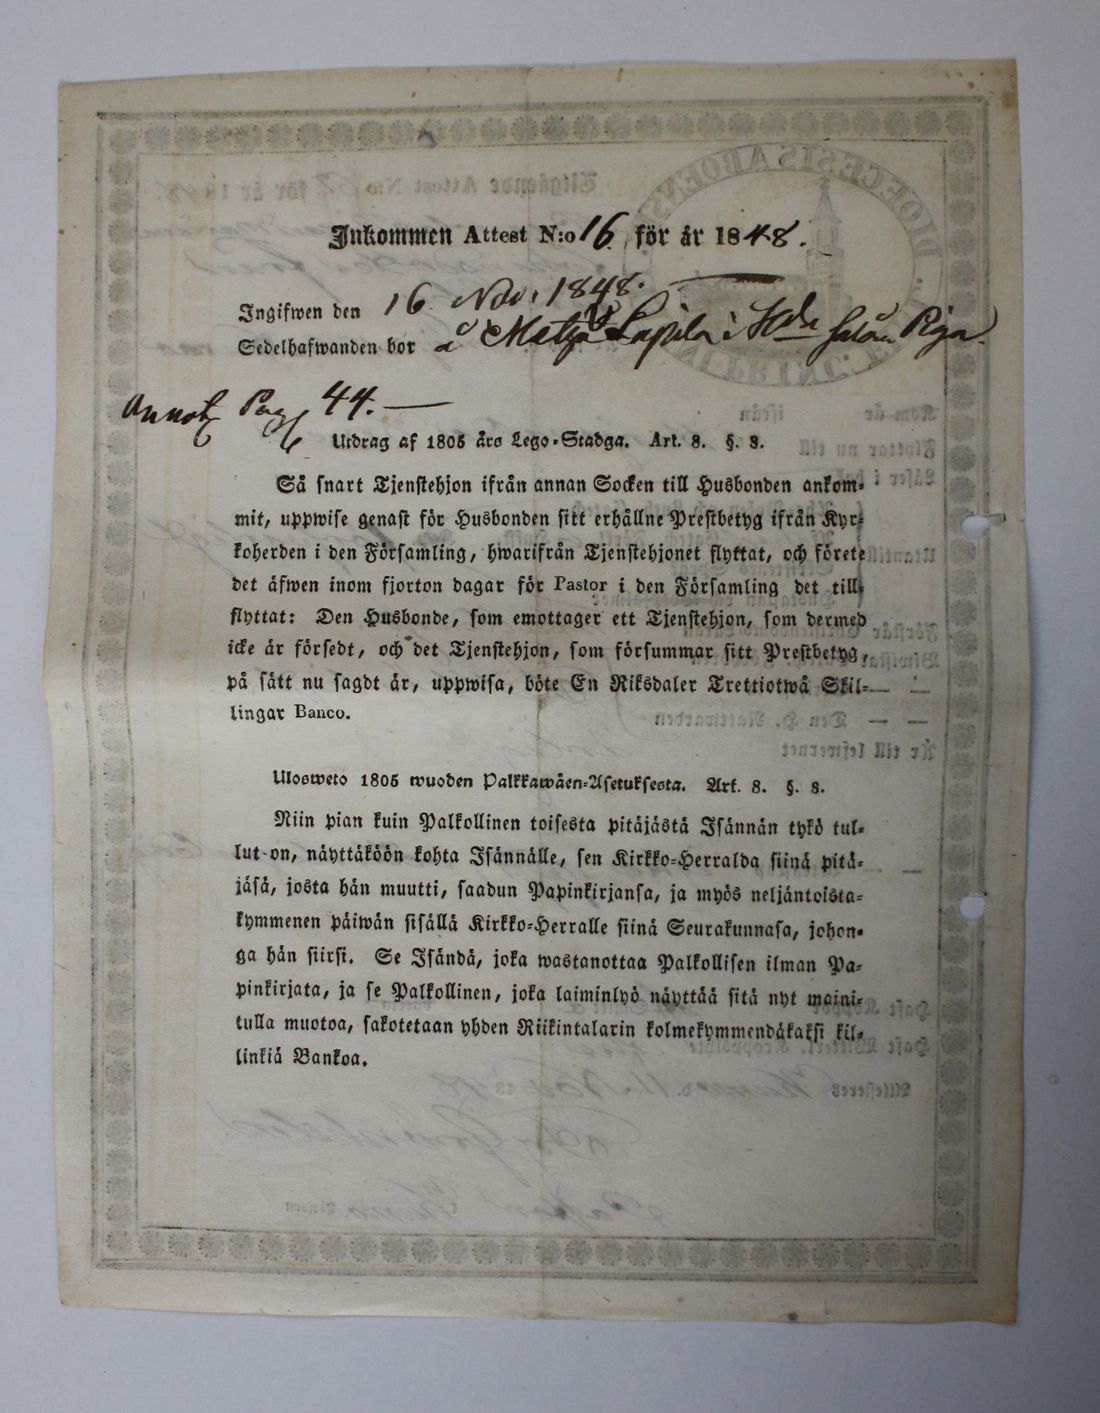 Inkommen Attest N:o 16 för år 1848.
Ingifwen den 16 Nov. 1848.
Sedelhafwanden bor å
Annot Pag 44.
Utdrag af 1805 års Lego-Stadga. Art. 8. §. 8.
Så snart Tjenstehjon ifrån annan Socken till Husbonden ankom-
mit, uppwise genast för Husbonden sitt erhållne Prestbetyg ifrån Kyr-
koherden i den Församling, hwarifrån Tjenstehjonet flyttat, och förete
det äfwen inom fjorton dagar för Pastor i den Församling det till-
flyttat: Den Husbonde, som emottager ett Tjenstehjon, som dermed
icke är försedt, och det Tjenstehjon, som försummar sitt Prestbetyg,
på sätt nu sagdt är, uppwisa, böte En Riksdaler Trettiotwå Skil-
lingar Banco.
Ulosweto 1805 wuoden Palkkawäen-Asetuksesta. Art. 8. §. 8.
Niin pian kuin Palkollinen toisesta pitäjästä Isännän tykö tul-
lut on, näyttäköön kohta Isännälle, sen Kirkko-Herralda siinä pitä-
jäsä, josta hän muutti, saadun Papinkirjansa, ja myös neljäntoista-
kymmenen päiwän sisällä Kirkko-Herralle siinä Seurakunnasa, johon-
ga hän siirsi. Se Isändä, joka wastanottaa Palkollisen ilman Pa-
pinkirjata, ja se Palkollinen, joka laiminlyö näyttää sitä nyt maini-
tulla muotoa, sakotetaan yhden Riikintalarin kolmekymmendäkaksi kil-
linkiä Bankoa.